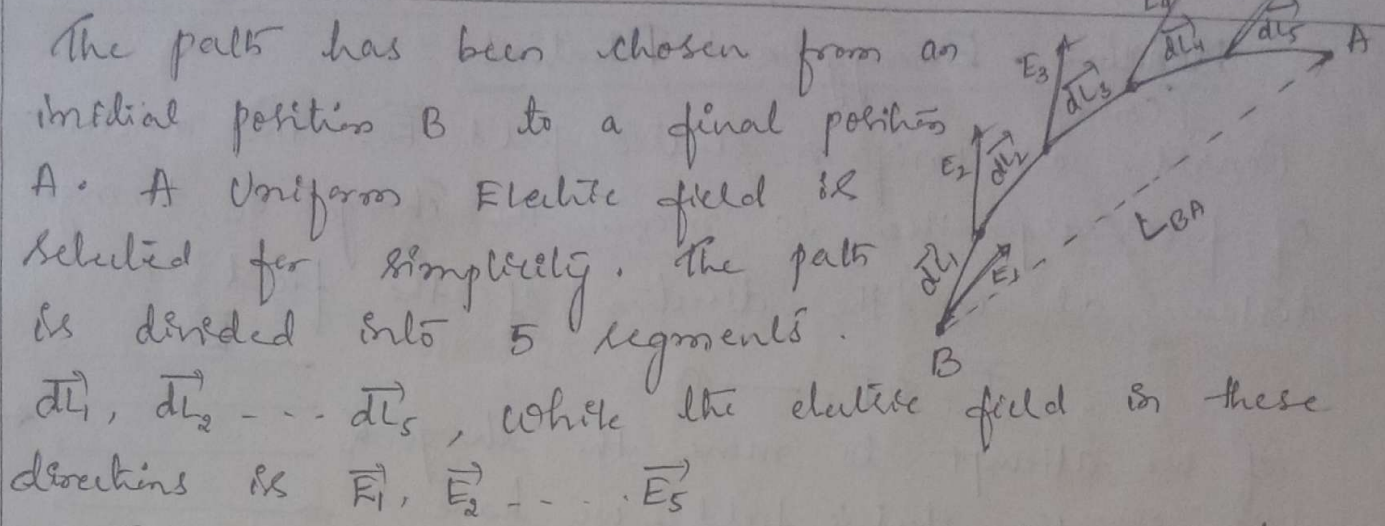 The path has been chosen from an
initial position B to a final position
A. A Uniform Electric field is
selected for simplicity. The path
is divided into 5 segments.
dL₁, dL₂ - - - dL₅, while the electric field in these
directions is E₁, E₂ - - - . E₅
E₄
dL₅
dL₄
A
E₃
dL₃
E₂
dL₂
L_BA
dL₁
E₁
B